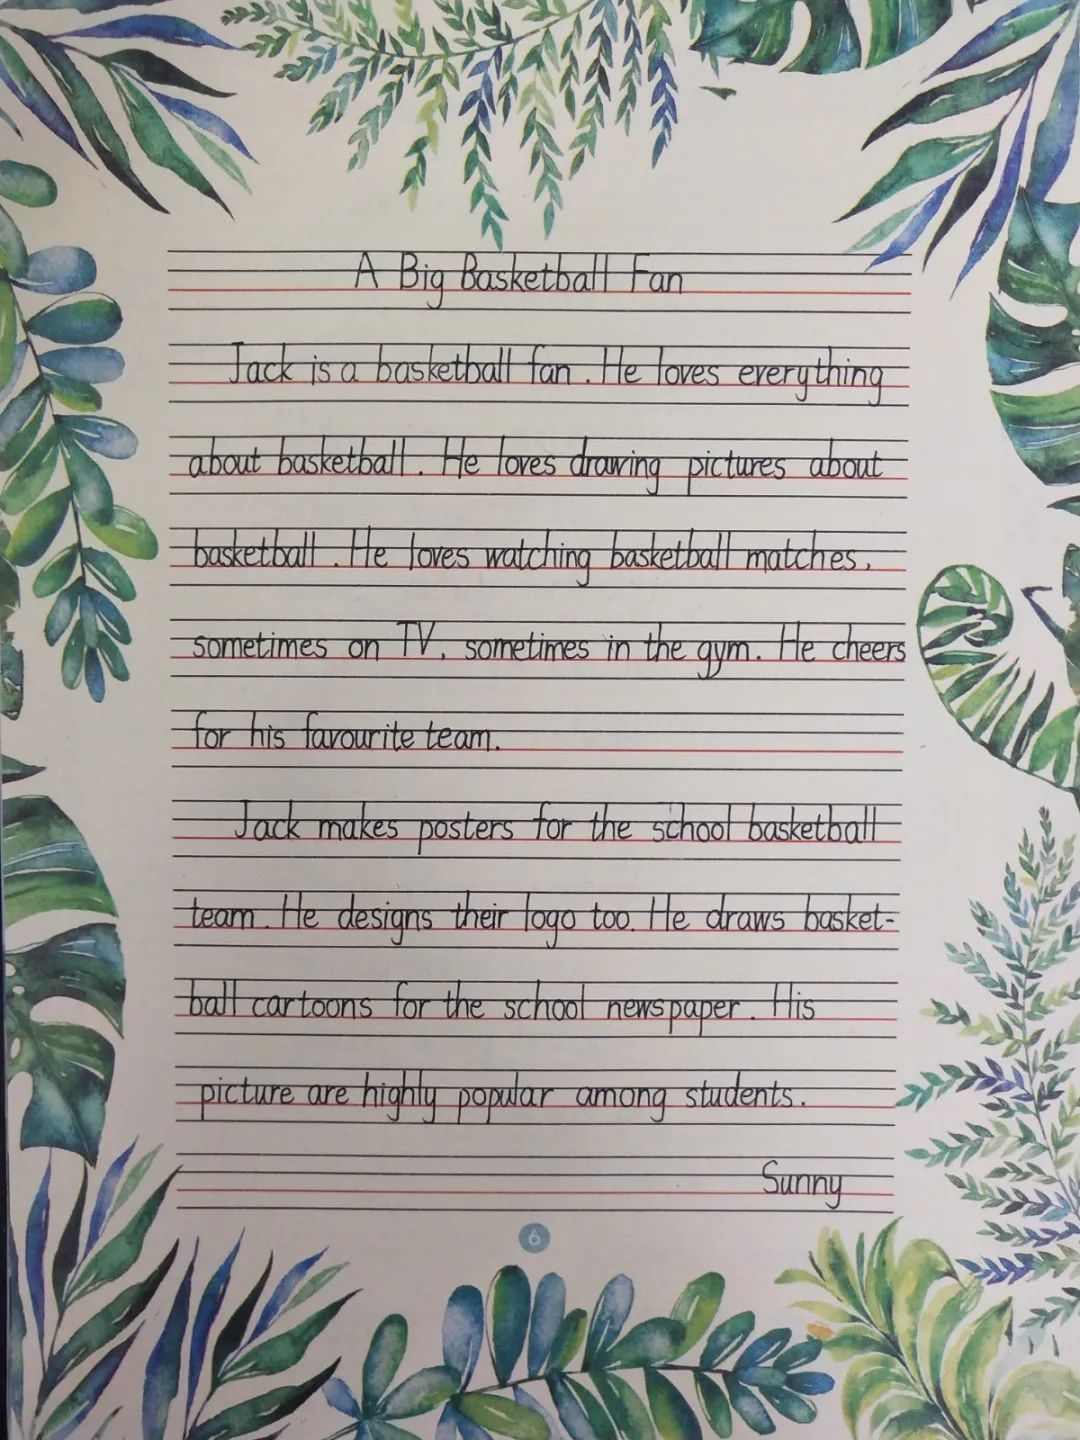 A Big Basketball Fan
Jack is a basketball fan. He loves everything
about basketball. He loves drawing pictures about
basketball. He loves watching basketball matches,
sometimes on TV, sometimes in the gym. He cheers
for his favourite team.
Jack makes posters for the school basketball
team. He designs their logo too. He draws basket-
ball cartoons for the school newspaper. His
picture are highly popular among students.
Sunny
6